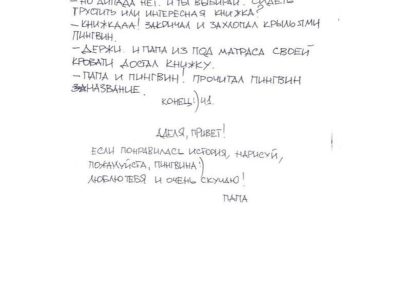 - НО ДИПАДА НЕТ. И ТЫ ВЫБИРАЙ. СИДЕТЬ
ГРУСТИТЬ ИЛИ ИНТЕРЕСНАЯ КНИЖКА?
- КНИЖКДАА! ЗАКРИЧАЛ И ЗАХЛОПАЛ КРЫЛЬЯМИ
ПИНГВИН.
- ДЕРЖИ. И ПАПА ИЗ ПОД МАТРАСА СВОЕЙ
КРОВАТИ ДОСТАЛ КНИЖКУ.
- ПАПА И ПИНГВИН! ПРОЧИТАЛ ПИНГВИН
НАЗВАНИЕ.
КОНЕЦ:) Ч1.
АДЕЛЯ, ПРИВЕТ!
ЕСЛИ ПОНРАВИЛАСЬ ИСТОРИЯ, НАРИСУЙ,
ПОЖАЛУЙСТА, ПИНГВИНА:)
ЛЮБЛЮ ТЕБЯ И ОЧЕНЬ СКУЧАЮ!
ПАПА